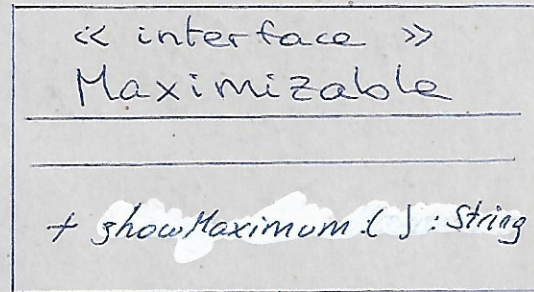 « interface »
Maximizable
+ showMaximum( ) : String